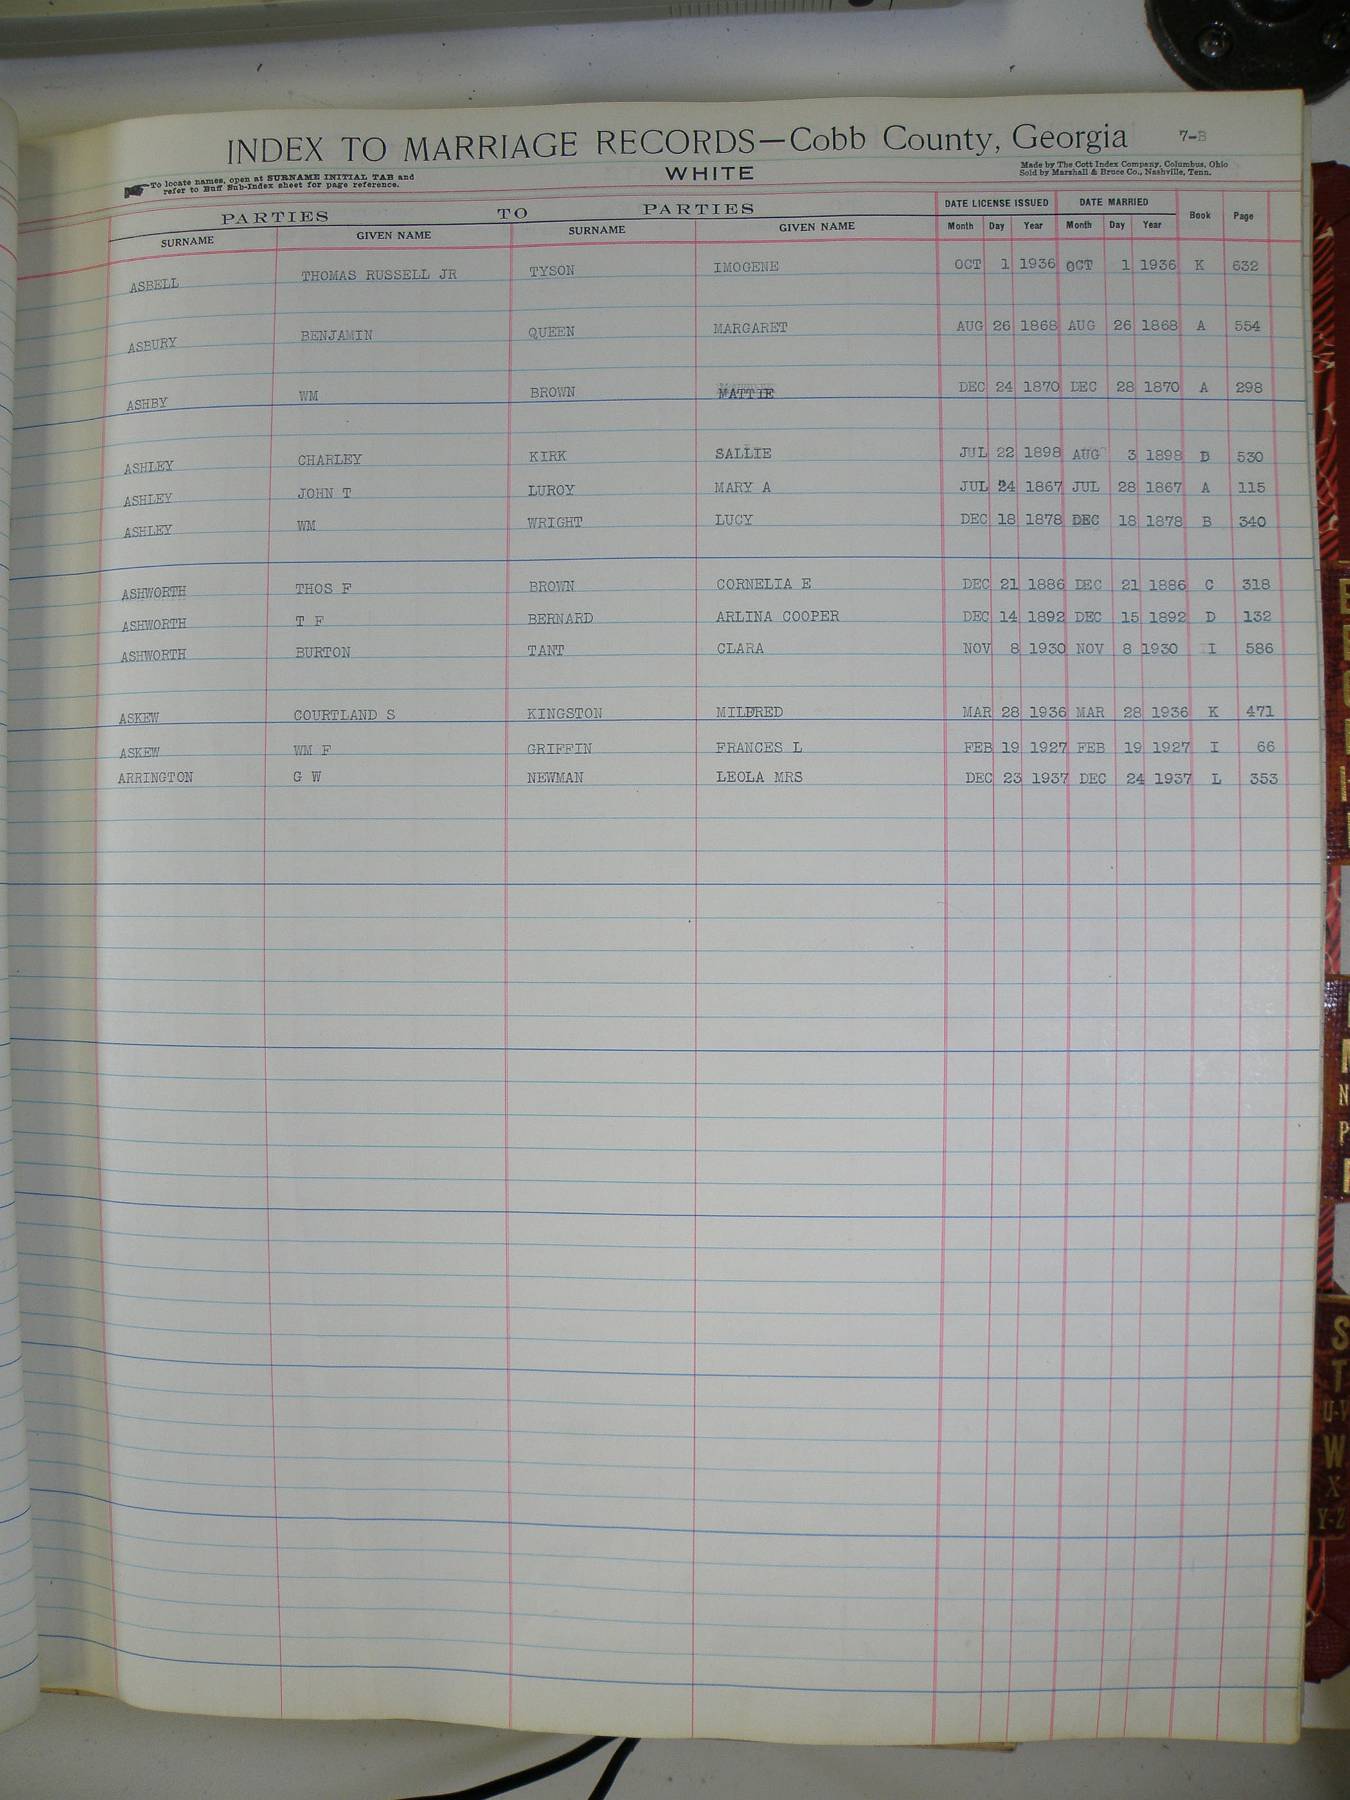 INDEX TO MARRIAGE RECORDS—Cobb County, Georgia 7-B
WHITE
To locate names, open at SURNAME INITIAL TAB and
refer to Buff Sub-Index sheet for page reference.
Made by The Cott Index Company, Columbus, Ohio
Sold by Marshall & Bruce Co., Nashville, Tenn.
PARTIES TO PARTIES DATE LICENSE ISSUED DATE MARRIED Book Page
SURNAME GIVEN NAME SURNAME GIVEN NAME Month Day Year Month Day Year
ASBELL THOMAS RUSSELL JR TYSON IMOGENE OCT 1 1936 OCT 1 1936 K 632
ASBURY BENJAMIN QUEEN MARGARET AUG 26 1868 AUG 26 1868 A 554
ASHBY WM BROWN MATTIE DEC 24 1870 DEC 28 1870 A 298
ASHLEY CHARLEY KIRK SALLIE JUL 22 1898 AUG 3 1898 D 530
ASHLEY JOHN T LUROY MARY A JUL 24 1867 JUL 28 1867 A 115
ASHLEY WM WRIGHT LUCY DEC 18 1878 DEC 18 1878 B 340
ASHWORTH THOS F BROWN CORNELIA E DEC 21 1886 DEC 21 1886 C 318
ASHWORTH T F BERNARD ARLINA COOPER DEC 14 1892 DEC 15 1892 D 132
ASHWORTH BURTON TANT CLARA NOV 8 1930 NOV 8 1930 I 586
ASKEW COURTLAND S KINGSTON MILDRED MAR 28 1936 MAR 28 1936 K 471
ASKEW WM F GRIFFIN FRANCES L FEB 19 1927 FEB 19 1927 I 66
ARRINGTON G W NEWMAN LEOLA MRS DEC 23 1937 DEC 24 1937 L 353
S
T
W
X